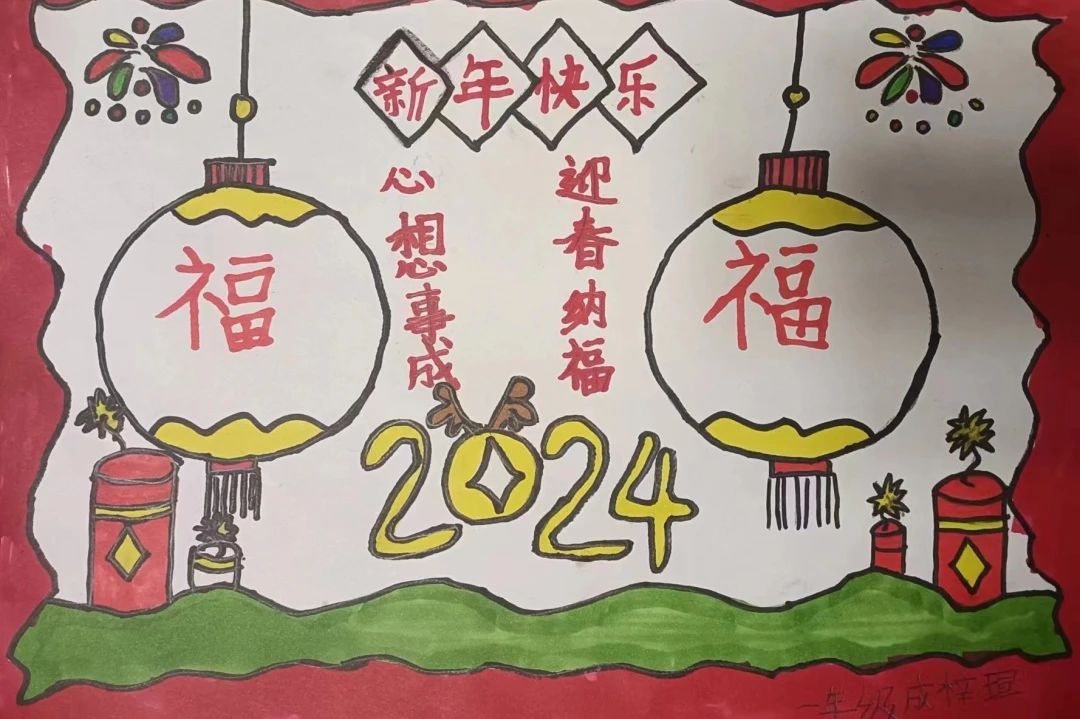 新年快乐
心想事成
迎春纳福
福
福
2024
一年级成梓瑄